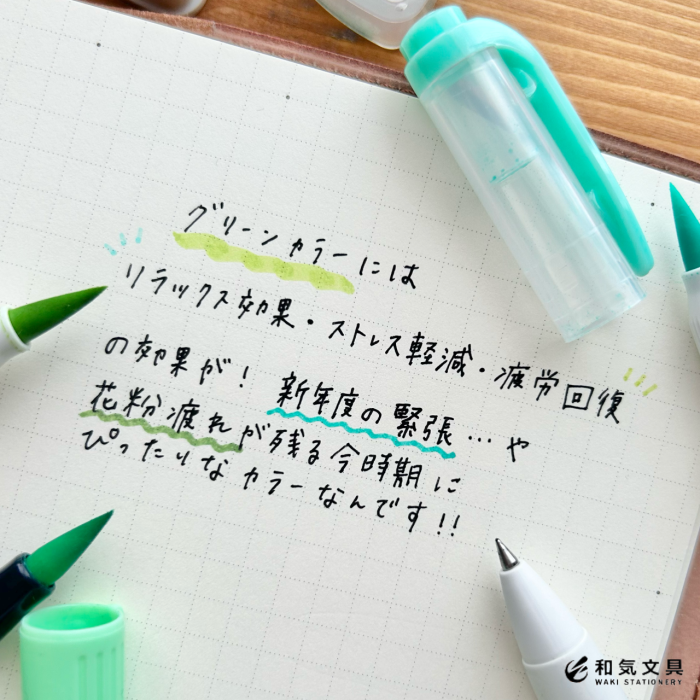 グリーンカラーには
リラックス効果・ストレス軽減・疲労回復
の効果が! 新年度の緊張…や
花粉疲れが残る今時期に
ぴったりなカラーなんです!!
和気文具
WAKI STATIONERY